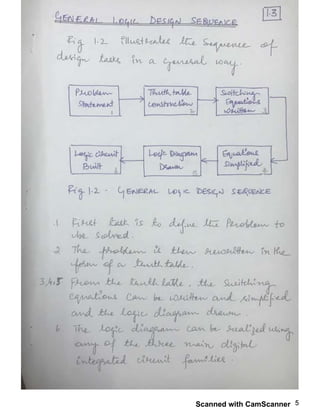 1.3
GENERAL LOGIC DESIGN SEQUENCE
Fig 1.2 illustrates the Sequence of
design tasks in a general way.
Problem Statement 1
Truth table construction 2
Switching Equations written 3
Logic Circuit Built 6
Logic Diagram Drawn 5
Equations Simplified 4
Fig 1.2 - GENERAL LOGIC DESIGN SEQUENCE
1 First task is to define the Problem to
be solved.
2 The problem is then rewritten in the
form of a truth table.
3,4,5 From the truth table, the switching
equations can be written and simplified
and the logic diagram drawn.
6 The logic diagram can be realized using
any of the three main digital
integrated circuit families.
Scanned with CamScanner 5